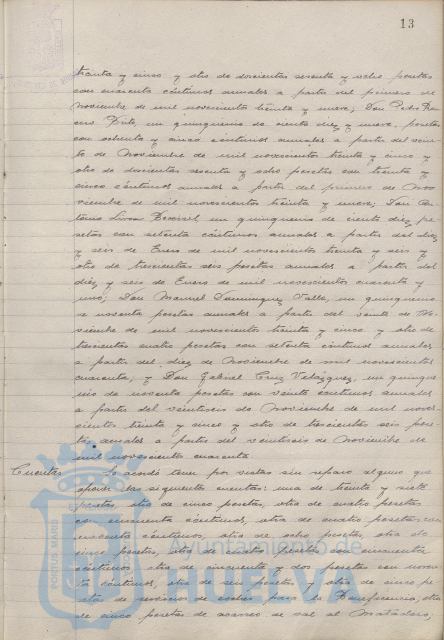 13
treinta y cinco y otro de doscientas sesenta y ocho pesetas
con cuarenta céntimos anuales a partir del primero de
Noviembre de mil novecientos treinta y nueve; Don Pedro
Brito, un quinquenio de ciento diez y nueve pesetas
con ochenta y cinco céntimos anuales a partir del vein-
te de Noviembre de mil novecientos treinta y cinco y
otro de doscientas sesenta y ocho pesetas con treinta y
cinco céntimos anuales a partir del primero de No-
viembre de mil novecientos treinta y nueve; Don An-
tonio un quinquenio de ciento diez pe-
setas con setenta céntimos anuales a partir del diez
y seis de Enero de mil novecientos treinta y seis y
otro de trescientas seis pesetas anuales a partir del
diez y seis de Enero de mil novecientos cuarenta y
uno; Don Manuel Dominguez Valle, un quinquenio
de noventa pesetas anuales a partir del veinte de No-
viembre de mil novecientos treinta y cinco y otro de
trescientas cuatro pesetas con setenta céntimos anuales
a partir del diez de Noviembre de mil novecientos
cuarenta; y Don Gabriel Cruz Velázquez, un quinque-
nio de noventa pesetas con veinte céntimos anuales
a partir del veintiseis de Noviembre de mil nove-
cientos treinta y cinco y otro de trescientas seis pese-
tas anuales a partir del veintiseis de Noviembre de
mil novecientos cuarenta
Cuentas. Se acordó tener por vistas sin reparo alguno que
oponer las siguientes cuentas: una de treinta y siete
pesetas, otra de cinco pesetas, otra de cuatro pesetas
con cincuenta céntimos, otra de cuatro pesetas con
céntimos, otra de ocho pesetas, otra de
cinco pesetas, otra de cuatro pesetas con cincuenta
céntimos, otra de cincuenta y dos pesetas con noven-
ta céntimos, otra de seis pesetas y otra de cinco pe-
setas de servicios de coches para la Beneficencia; otra
de cinco pesetas de acarreo de sal al Matadero;
Ayuntamiento de
HUELVA
PORTUS MARIS